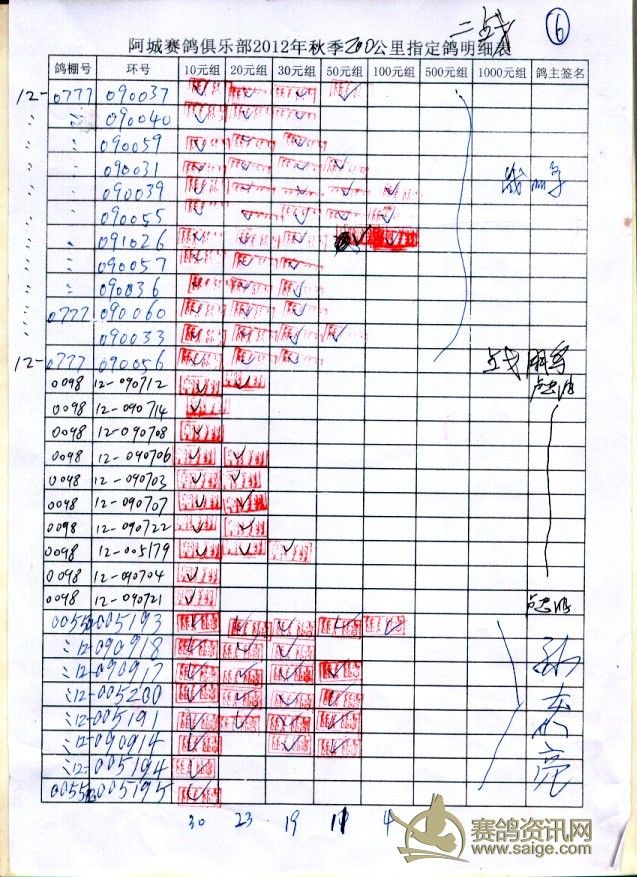 二战 ⑥
阿城赛鸽俱乐部2012年秋季200公里指定鸽明细表
鸽棚号 环号 10元组 20元组 30元组 50元组 100元组 500元组 1000元组 鸽主签名
12-0777 090037
〃 090040
〃 090059
〃 090031
〃 090039
〃 090055
〃 091026
〃 090057
〃 090036
0777 090060
090033
12-0777 090056
0098 12-090712
0098 12-090714
0098 12-090708
0098 12-090706
0098 12-090703
0098 12-090707
0098 12-090722
0098 12-005179
0098 12-090704
0098 12-090721
0055 005193
12-090918
12-090917
12-005200
12-005191
12-090914
12-005194
0055 005195
30 23 19 11 4
赛鸽资讯网
www.saige.com